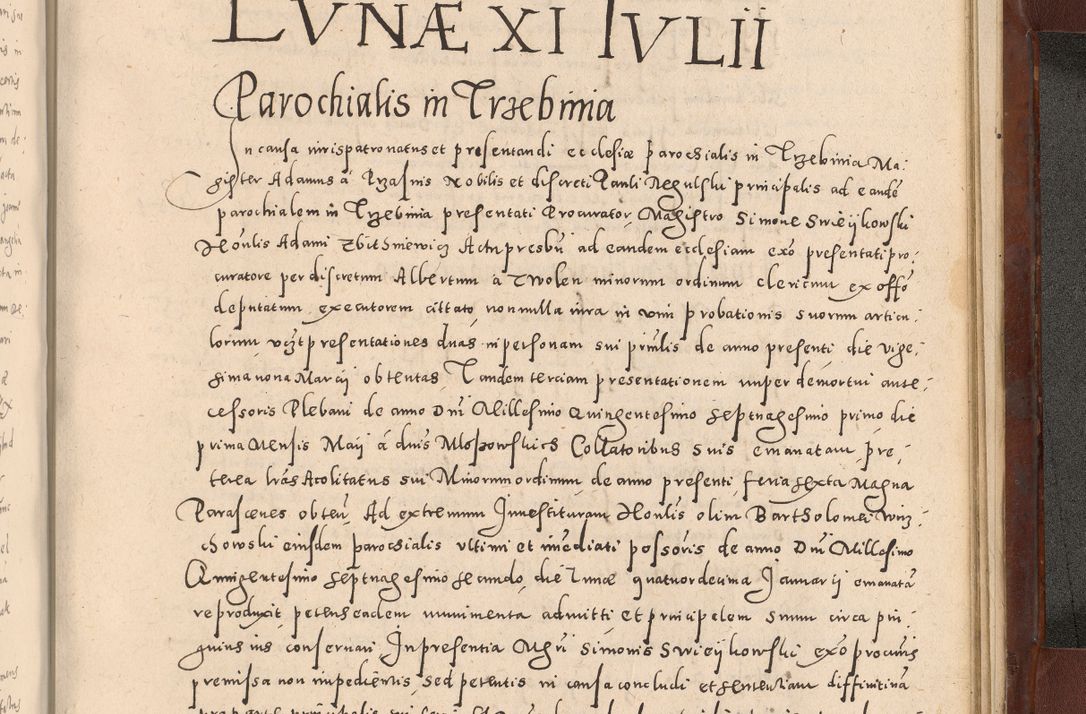 LVNÆ XI IVLII
Parochialis in Trzebinia
In causa iurispatronatus et presentandi ecclesiæ parochialis in Trzebinia Ma:
gister Adamus á Przasnis Nobilis et discreti Pauli Regulski principalis ad eandē
parochialem in Trzebinia presentati Procurator, Magistro Simone Swieÿkowski
Honlis Adami Zbithniewicz Actu presbri ad eandem ecclesiam exō presentati pro:
curatore per discretum Albertum à Zwolen minorum ordinum clericum ex offō
deputatum executorem cittato, nonnulla iura in vim probationis suorum articu:
lorum, vczt presentationes duas in personam sui prīnlis de anno presenti die vige:
sima nona Marcij obtentas, Tandem terciam presentationem nuper demortui ante:
cessoris Plebani de anno Dnī Millesimo Quingentesimo Septuagesimo primo die
prima Mensis Maij á dnis Mloszowskics Collatoribus suis emanatam, Pre:
terea lrās Acolitatus sui Minorum ordinum de anno presenti feria sexta Magna
Parascenes obten, Ad extremum Inuestituram Honlis olim Bartholomei
chowski eiusdem parochialis vltimi et imediati possōris de anno Dnī Millesimo
Quingentesimo Septuagesimo secundo, die Lunæ quatuordecima Januarij emanatā
reproduxit petens eadem munimenta admitti et principelem suum circa pin
guius ius conseruari, In presentia Mgrī Simonis Swieÿkowski exō procuris
premissa non impedientis, sed petentis in causa concludi et sententiam diffinitiuā